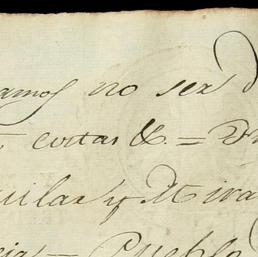 amos no ser d
costas &. = Dn
uilar y Mira
cia = Pueblo